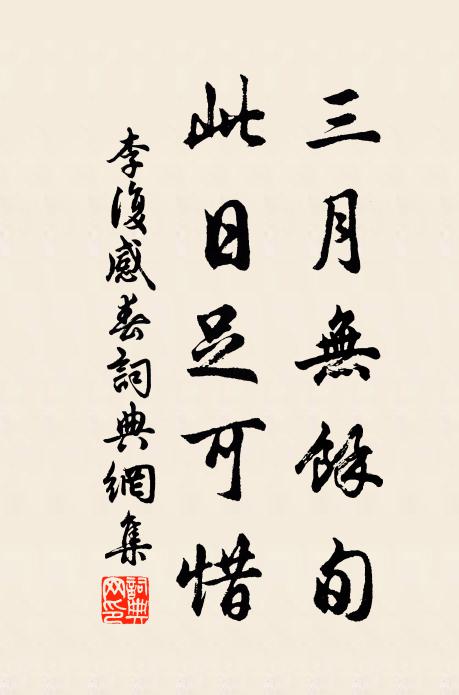 三月無餘旬
此日足可惜
李復感春詞典網集
詞典網印